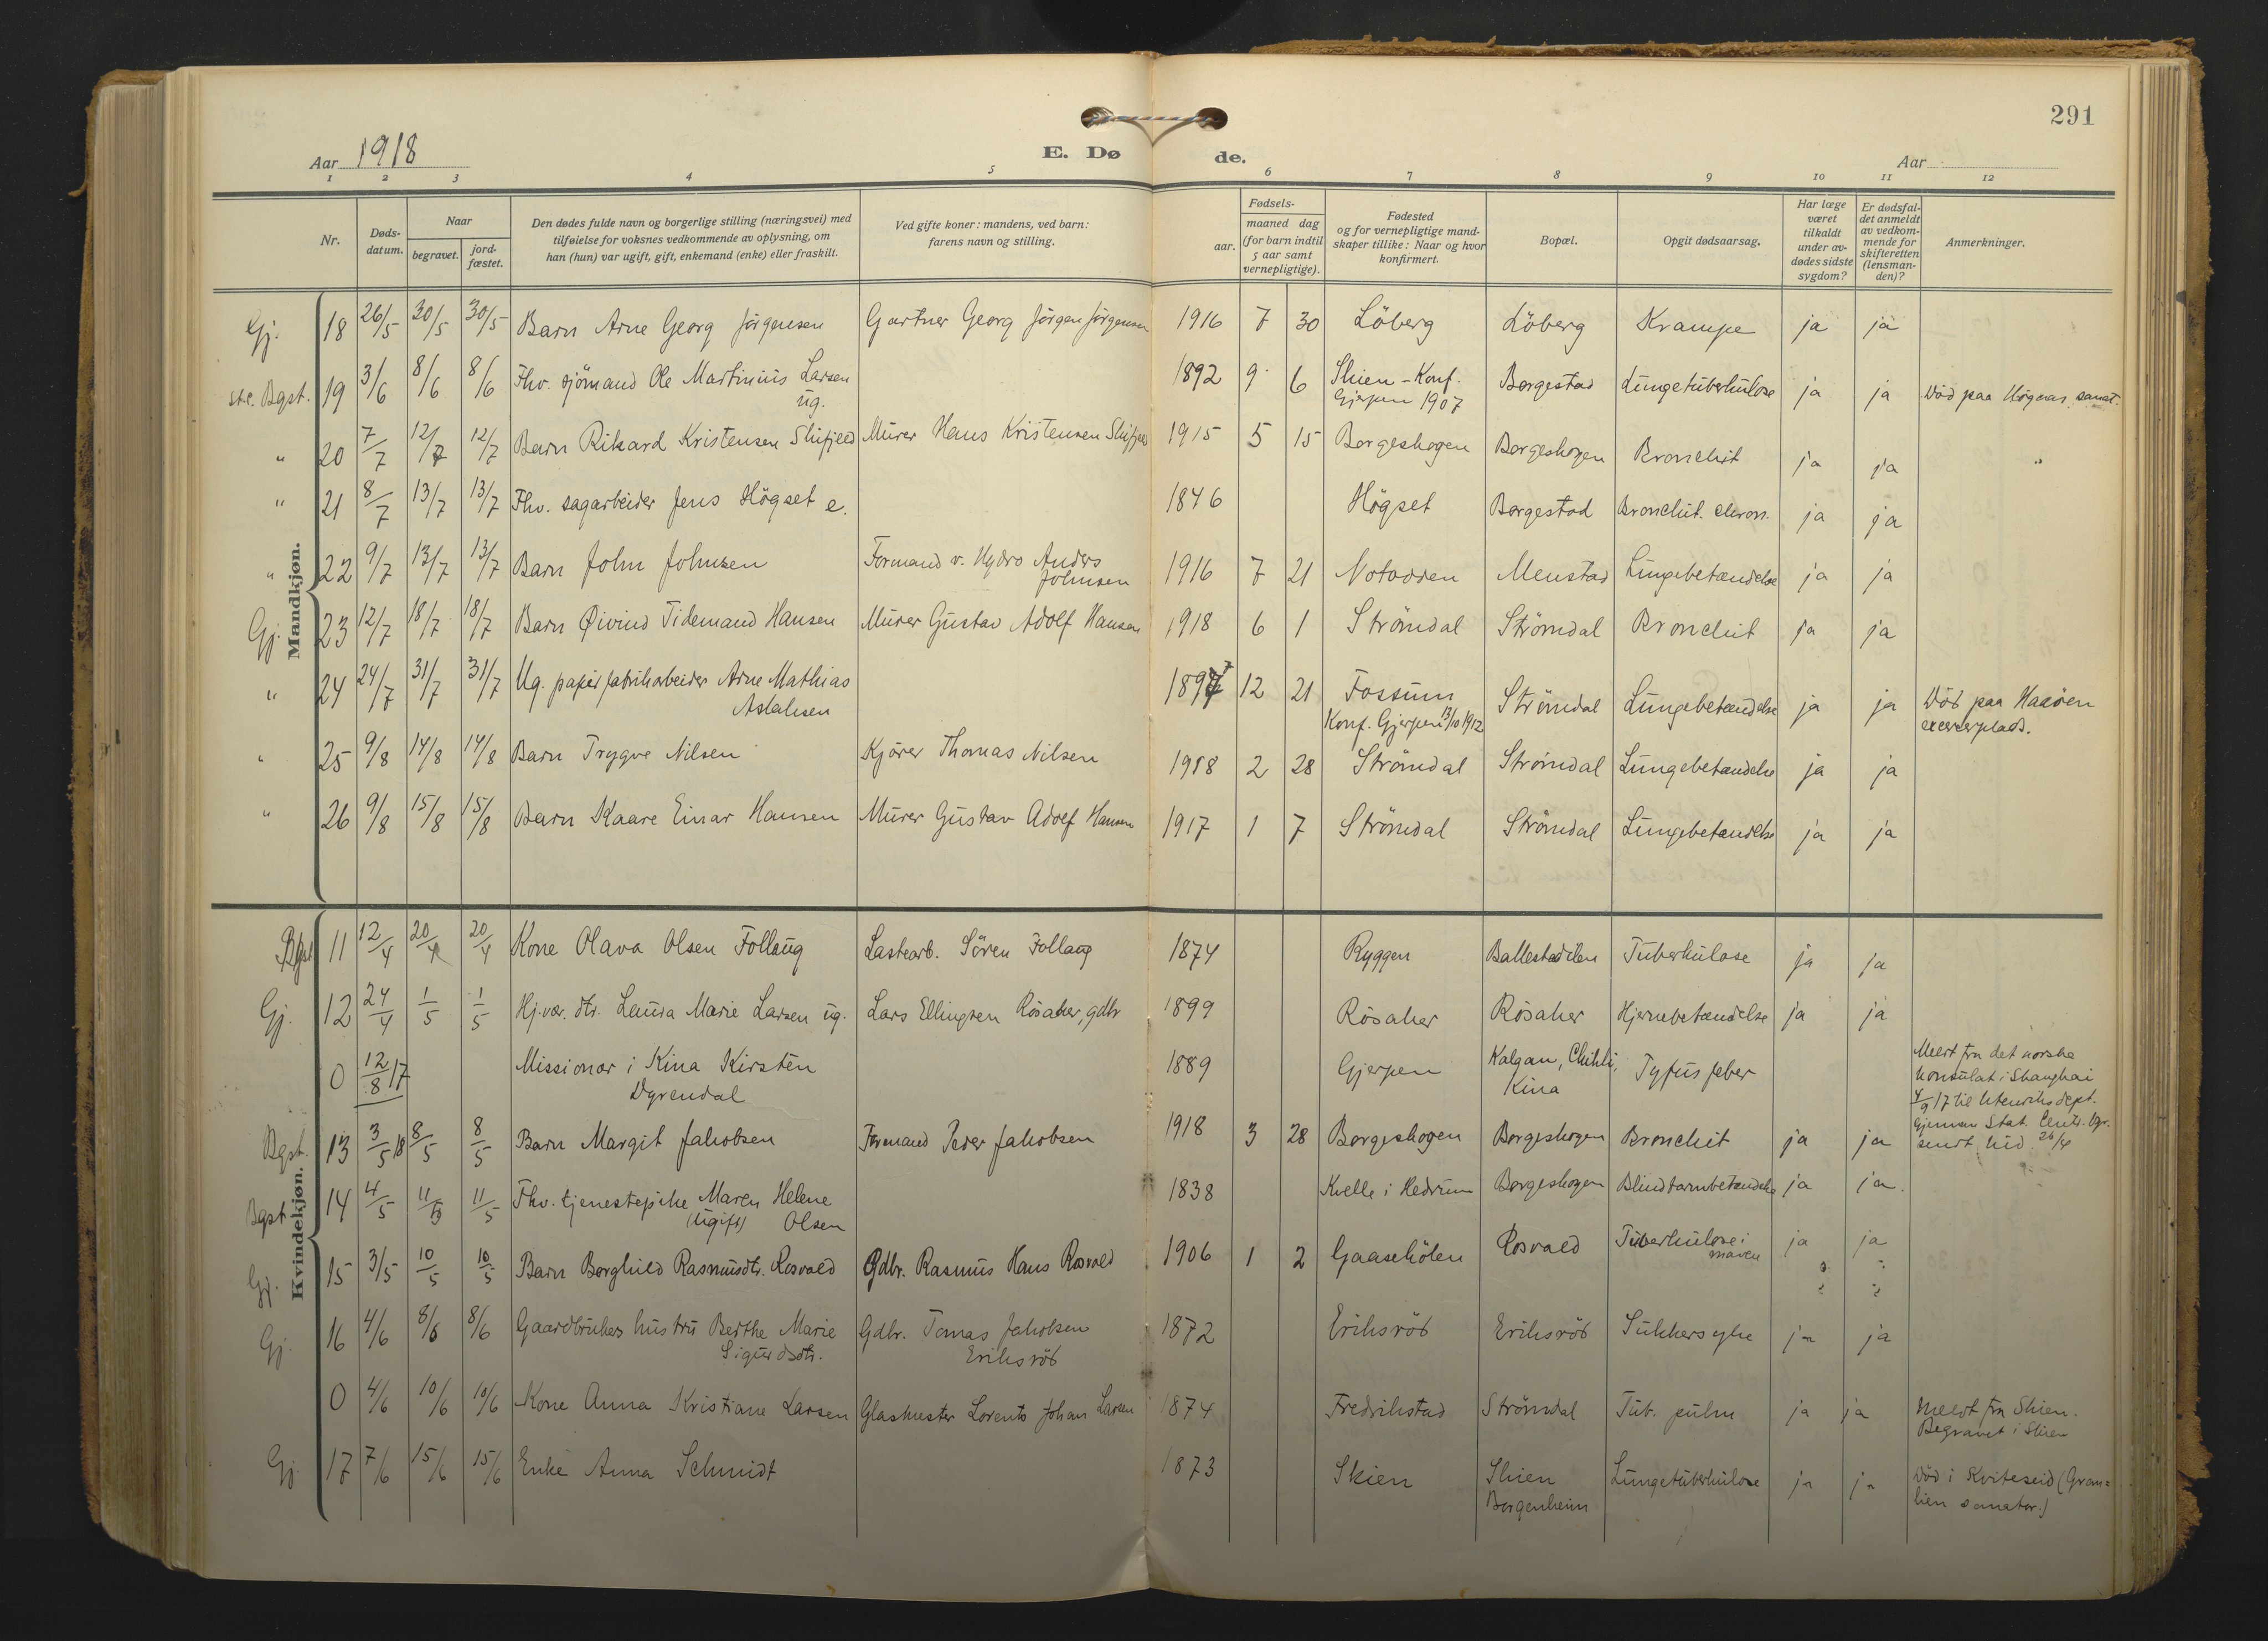 291
Aar 1918
E. Døde.
Aar
1 2 3 4 5 6 7 8 9 10 11 12
Nr.
Døds-
datum.
Naar
begravet.
jord-
fæstet.
Den dødes fulde navn og borgerlige stilling (næringsvei) med
tilføielse for voksnes vedkommende av oplysning, om
han (hun) var ugift, gift, enkemand (enke) eller fraskilt.
Ved gifte koner: mandens, ved barn:
farens navn og stilling.
Fødsels-
aar.
maaned dag
(for barn indtil
5 aar samt
vernepligtige).
Fødested
og for vernepligtige mand-
skaper tillike: Naar og hvor
konfirmert.
Bopæl.
Opgit dødsaarsag.
Har læge
været
tilkaldt
under av-
dødes sidste
sygdom?
Er dødsfal-
det anmeldt
av vedkom-
mende for
skifteretten
(lensman-
den)?
Anmerkninger.
Mandkjøn.
Gj. 18 26/5 30/5 30/5 Barn Arne Georg Jörgensen Gartner Georg Jörgen Jörgensen 1916 7 30 Löberg Löberg Krampe ja ja
Bgst. 19 3/6 8/6 8/6 Fhv. sjömand Ole Martinius Larsen 1892 9 6 Skien - Konf. Borgestad Lungetuberkulose ja ja Död paa Högnas sanat.
ug. Gjerpen 1907
" 20 7/7 12/7 12/7 Barn Rikard Kristensen Skifjeld Murer Hans Kristensen Skifjeld 1915 5 15 Borgeskogen Borgeskogen Bronchit ja ja "
" 21 8/7 13/7 13/7 Fhv. sagarbeider Jens Högset e. 1846 Högset Borgestad Bronchit. chron. ja ja
" 22 9/7 13/7 13/7 Barn John Johnsen Formand v. Hydro Anders 1916 7 21 Notodden Menstad Lungebetændelse ja ja
Johnsen
Gj. 23 12/7 18/7 18/7 Barn Øivind Tidemand Hansen Murer Gustav Adolf Hansen 1918 6 1 Strömdal Strömdal Bronchit ja ja
" 24 24/7 31/7 31/7 Ug. papirfabrikarbeider Arne Mathias 1897 12 21 Fossum Strömdal Lungebetændelse ja ja Död paa Haröen
Aslaksen Konf. Gjerpen 13/10 1912 excercerplads.
" 25 9/8 14/8 14/8 Barn Trygve Nilsen Kjörer Thomas Nilsen 1918 2 28 Strömdal Strömdal Lungebetændelse ja ja
" 26 9/8 15/8 15/8 Barn Kaare Einar Hansen Murer Gustav Adolf Hansen 1917 1 7 Strömdal Strömdal Lungebetændelse ja ja
Kvindekjøn.
Bgst 11 12/4 20/4 20/4 Kone Olava Olsen Follaug Lastearb. Sören Follaug 1874 Ryggen Ballestadilen Tuberkulose ja ja
Gj. 12 24/4 1/5 1/5 Hj.vær. dtr. Laura Marie Larsen ug. Lars Ellingsen Rösaker, gdbr 1899 Rösaker Rösaker Hjernebetændelse ja ja
0 12/8 17 Missionær i Kina Kirsten 1889 Gjerpen Kalgan, Chihli, Tyfusfeber Meldt fra det norske
Dyrendal Kina konsulat i Shanghai
4/9 17 til Utenriksdept.
Gjennem Stat. Centr. byr.
sendt hid 26/4
Bgst. 13 3/5 18 8/5 8/5 Barn Margit Jakobsen Formand Peder Jakobsen 1918 3 28 Borgeskogen Borgeskogen Bronchit ja ja
Bgst 14 4/5 11/5 11/5 Fhv. tjenestepike Maren Helene 1838 Kvelle i Hedrum Borgeskogen Blindtarmbetændelse ja ja.
(ugift) Olsen
Gj. 15 3/5 10/5 10/5 Barn Borghild Rasmusdtr. Rosvald Gdbr. Rasmus Hans Rosvald 1906 1 2 Gaasehölen Rosvald Tuberkulose i ja ja
maven
Gj. 16 4/6 8/6 8/6 Gaardbrukers hustru Berthe Marie Gdbr. Tomas Jakobsen 1872 Eriksröd Eriksröd Sukkersyke ja ja
Sigurdsdtr. Eriksröd
0 4/6 10/6 10/6 Kone Anna Kristiane Larsen Glasmester Lorents Johan Larsen 1874 Fredrikstad Strömdal Tub. pulm ja ja Meldt fra Skien.
Begravet i Skien
Gj. 17 7/6 15/6 15/6 Enke Anna Schmidt 1873 Skien Skien Lungetuberkulose ja ja Död i Kviteseid (Gran-
Borgenheim lien sanator.)